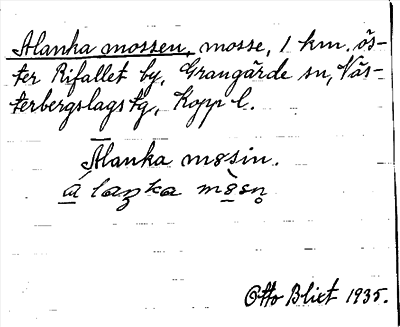 Alanka mossen, mosse, 1 km. ös-
ter Rifallet by, Grangärde sn, Väs-
terbergslags tg, Kopp l.
Alanka mosin.
Otto Blixt 1935.